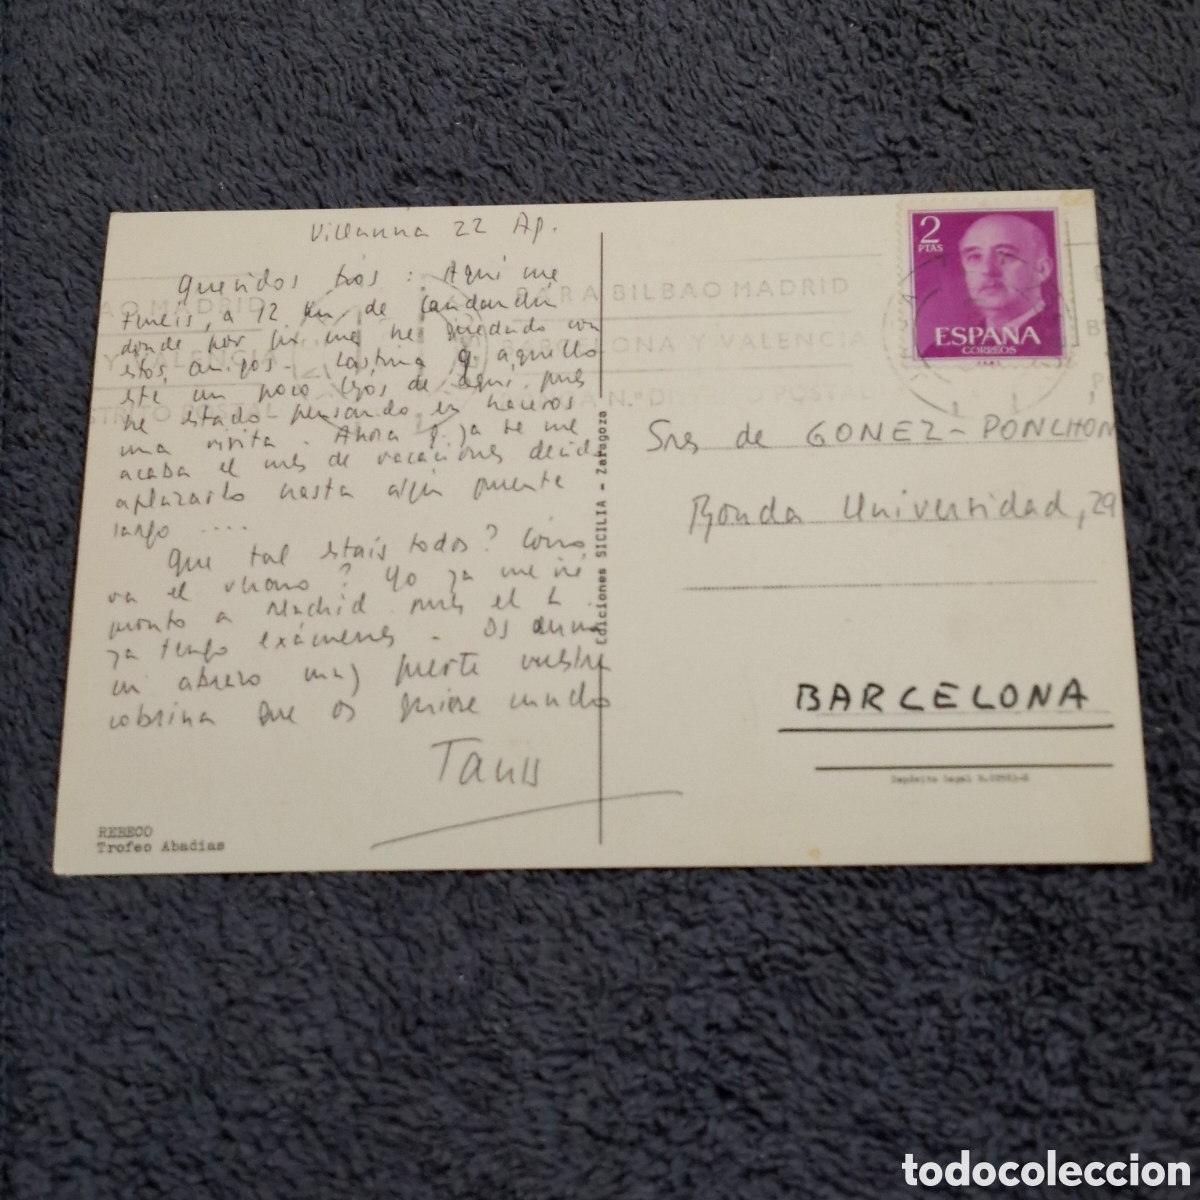 Villanúa 22 Ap.
Queridos tíos: Aquí me
tenéis, a 12 km de Candanchú
donde por fin me he quedado con
estos amigos. Lástima q. aquello
esté un poco lejos de aquí, pues
he estado pensando en haceros
una visita. Ahora q. ya se me
acaba el mes de vacaciones decid
aplazarlo hasta algún puente
largo ....
Que tal estáis todos? Cómo
va el verano? Yo ya me iré
pronto a Madrid pues el 2
ya tengo exámenes. Os envía
un abrazo muy fuerte vuestra
sobrina que os quiere mucho
Tanis
REBECO
Trofeo Abadias
Ediciones SICILIA - Zaragoza
AO MADRID
Y VALENCIA
STRITO POSTAL
PARA BILBAO MADRID
BARCELONA Y VALENCIA
Nº DISTRITO POSTAL
2
PTAS
ESPAÑA
CORREOS
Sres de GOMEZ-PONCHON
Ronda Universidad, 29
BARCELONA
Depósito Legal
todocoleccion